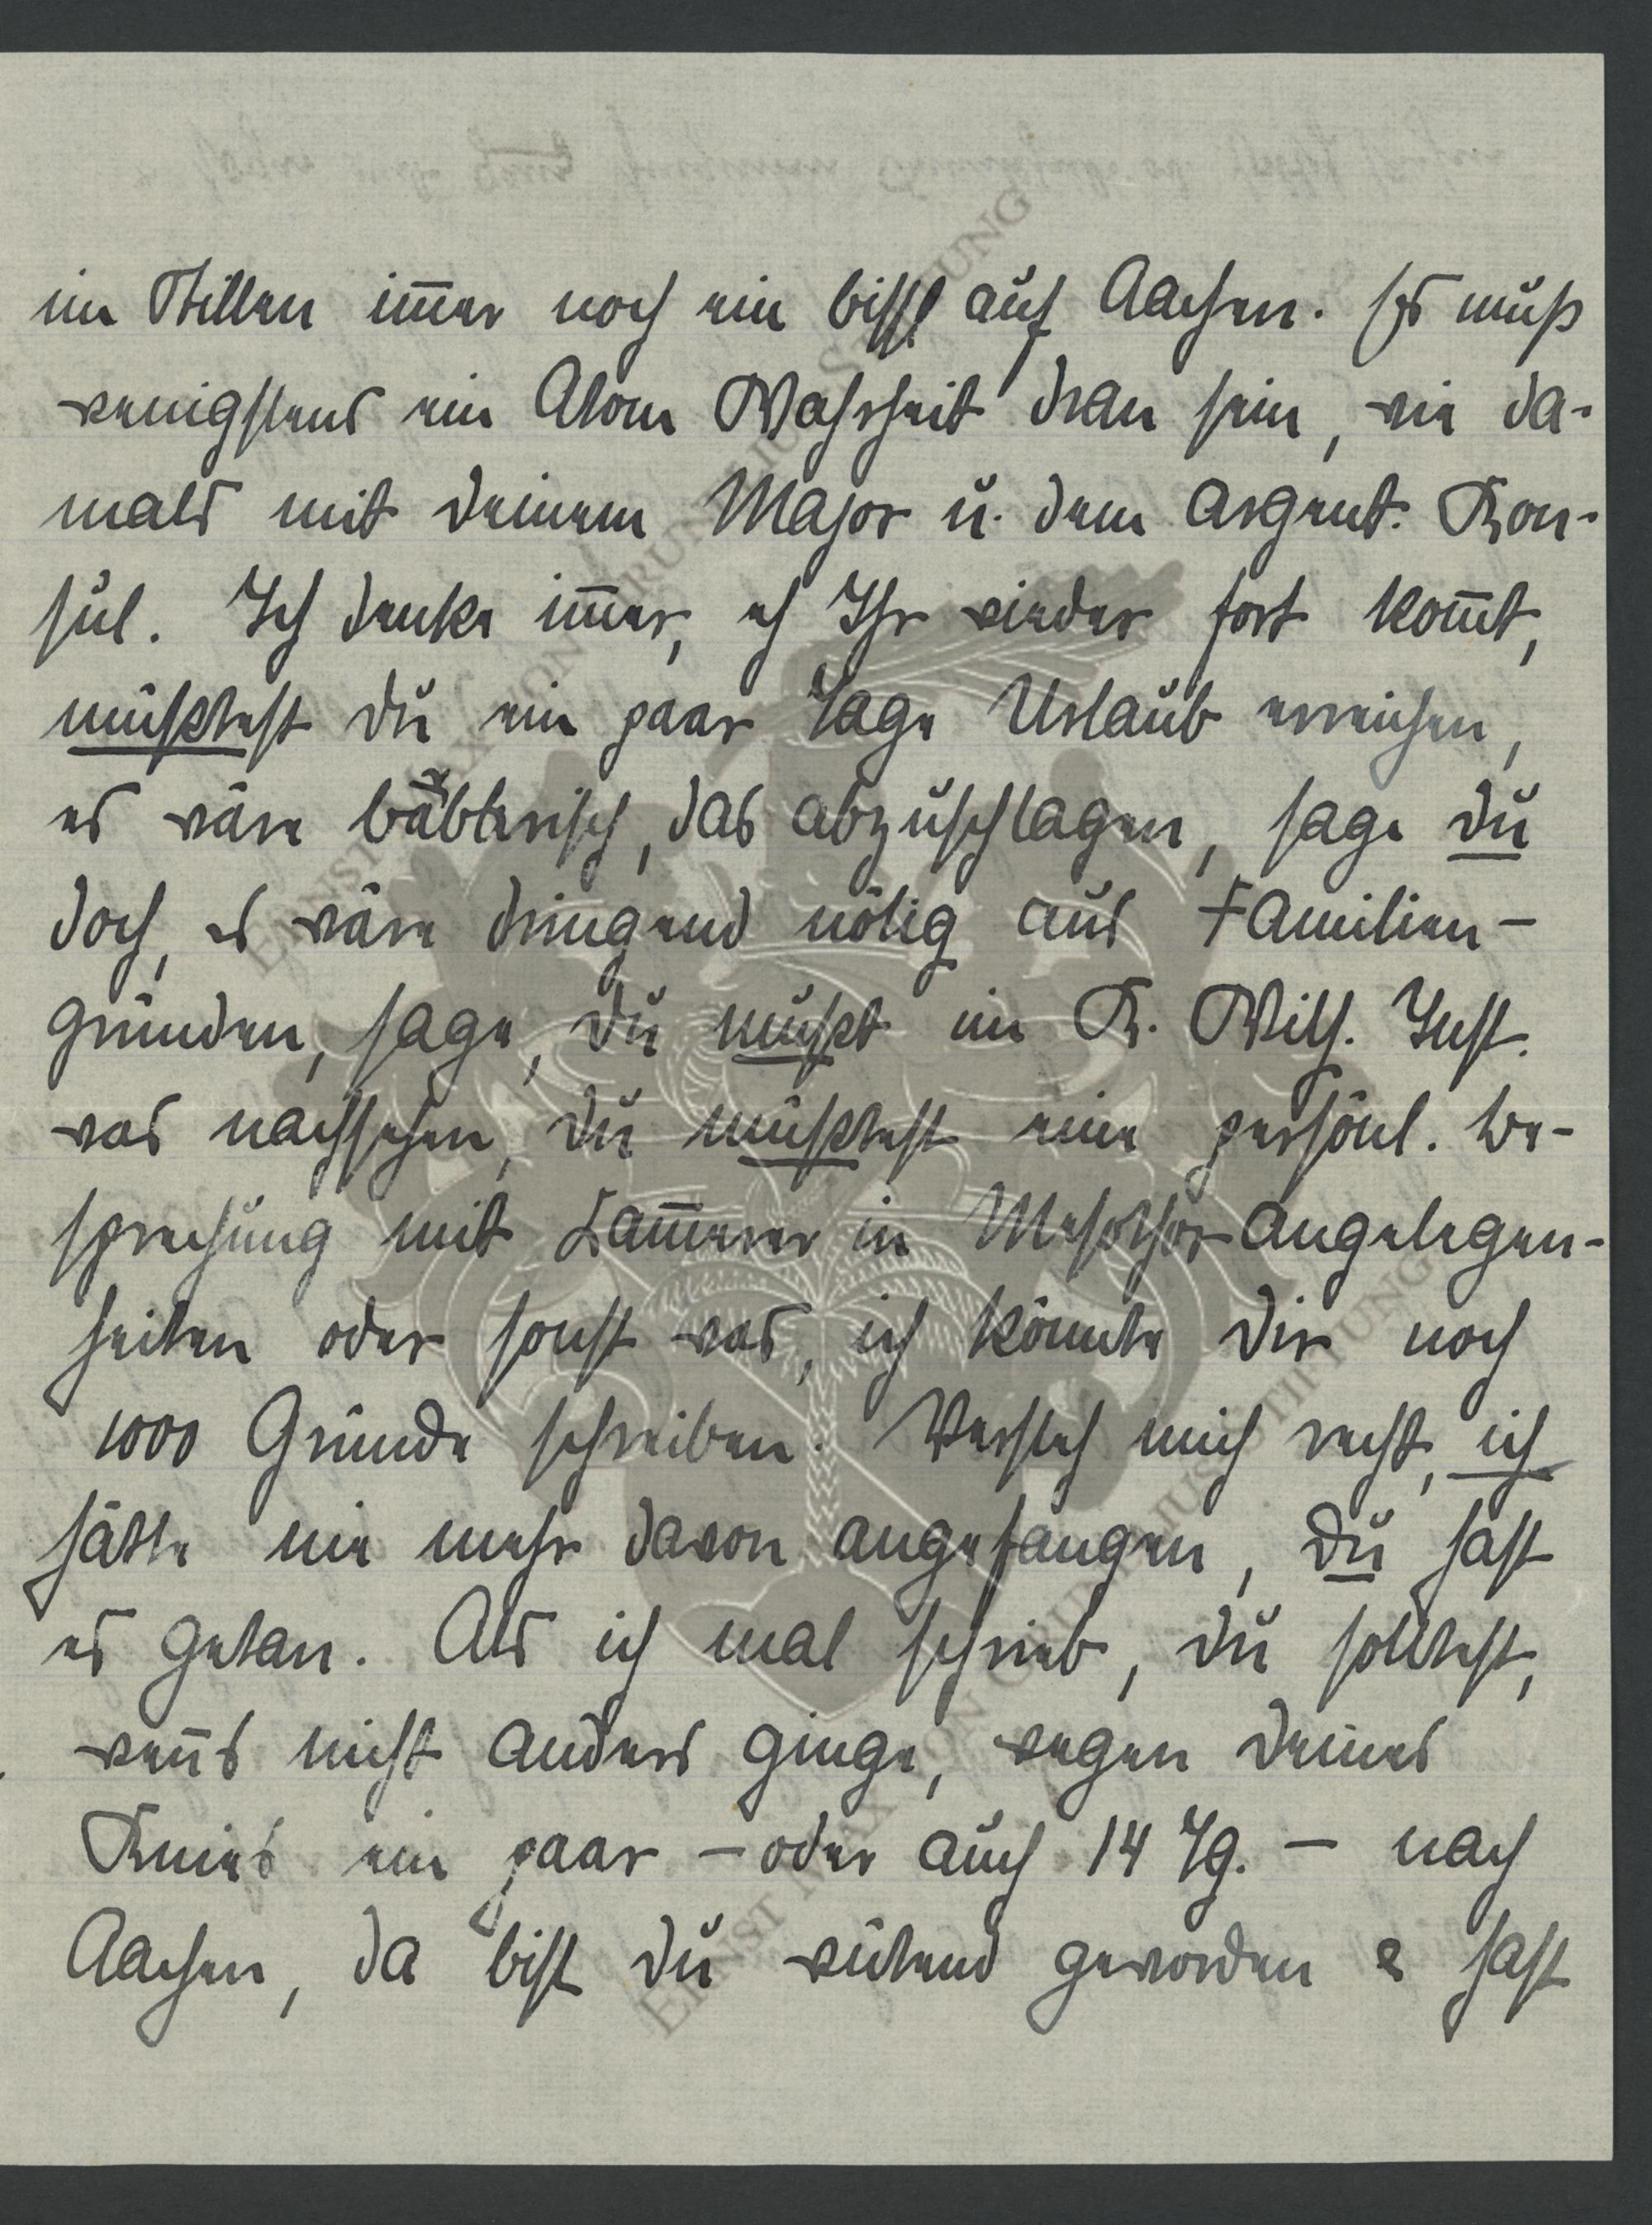 im Stillen im̅er noch ein bissl auf Aachen. Es muß
wenigstens ein Atom Wahrheit dran sein, wie da-
mals mit deinem Major u. dem argent. Kon-
sul. Ich denke im̅er, eh Ihr wieder fort kom̅t,
müßtest du ein paar Tage Urlaub erreichen,
es wäre das abzuschlagen, sage du
doch, es wäre dringend nötig aus Familien-
gründen, sage, du mußt im K. Wilh. Inst.
was nachsehen, du müßtest eine persönl. Be-
sprechung mit Lam̅erer in angelegen-
heiten oder sonst was, ich könnte dir noch
1000 Gründe schreiben. Versteh mich recht, ich
hätte nie mehr davon angefangen, du hast
es getan. Als ich mal schrieb, du solltest,
wen̅s nicht anders ginge, wegen deines
Knies ein paar – oder auch 14 Tg. – nach
Aachen, da bist du wütend geworden & hast
ERNST MAX VON GRUNELIUS STIFTUNG
ERNST MAX VON GRUNELIUS STIFTUNG